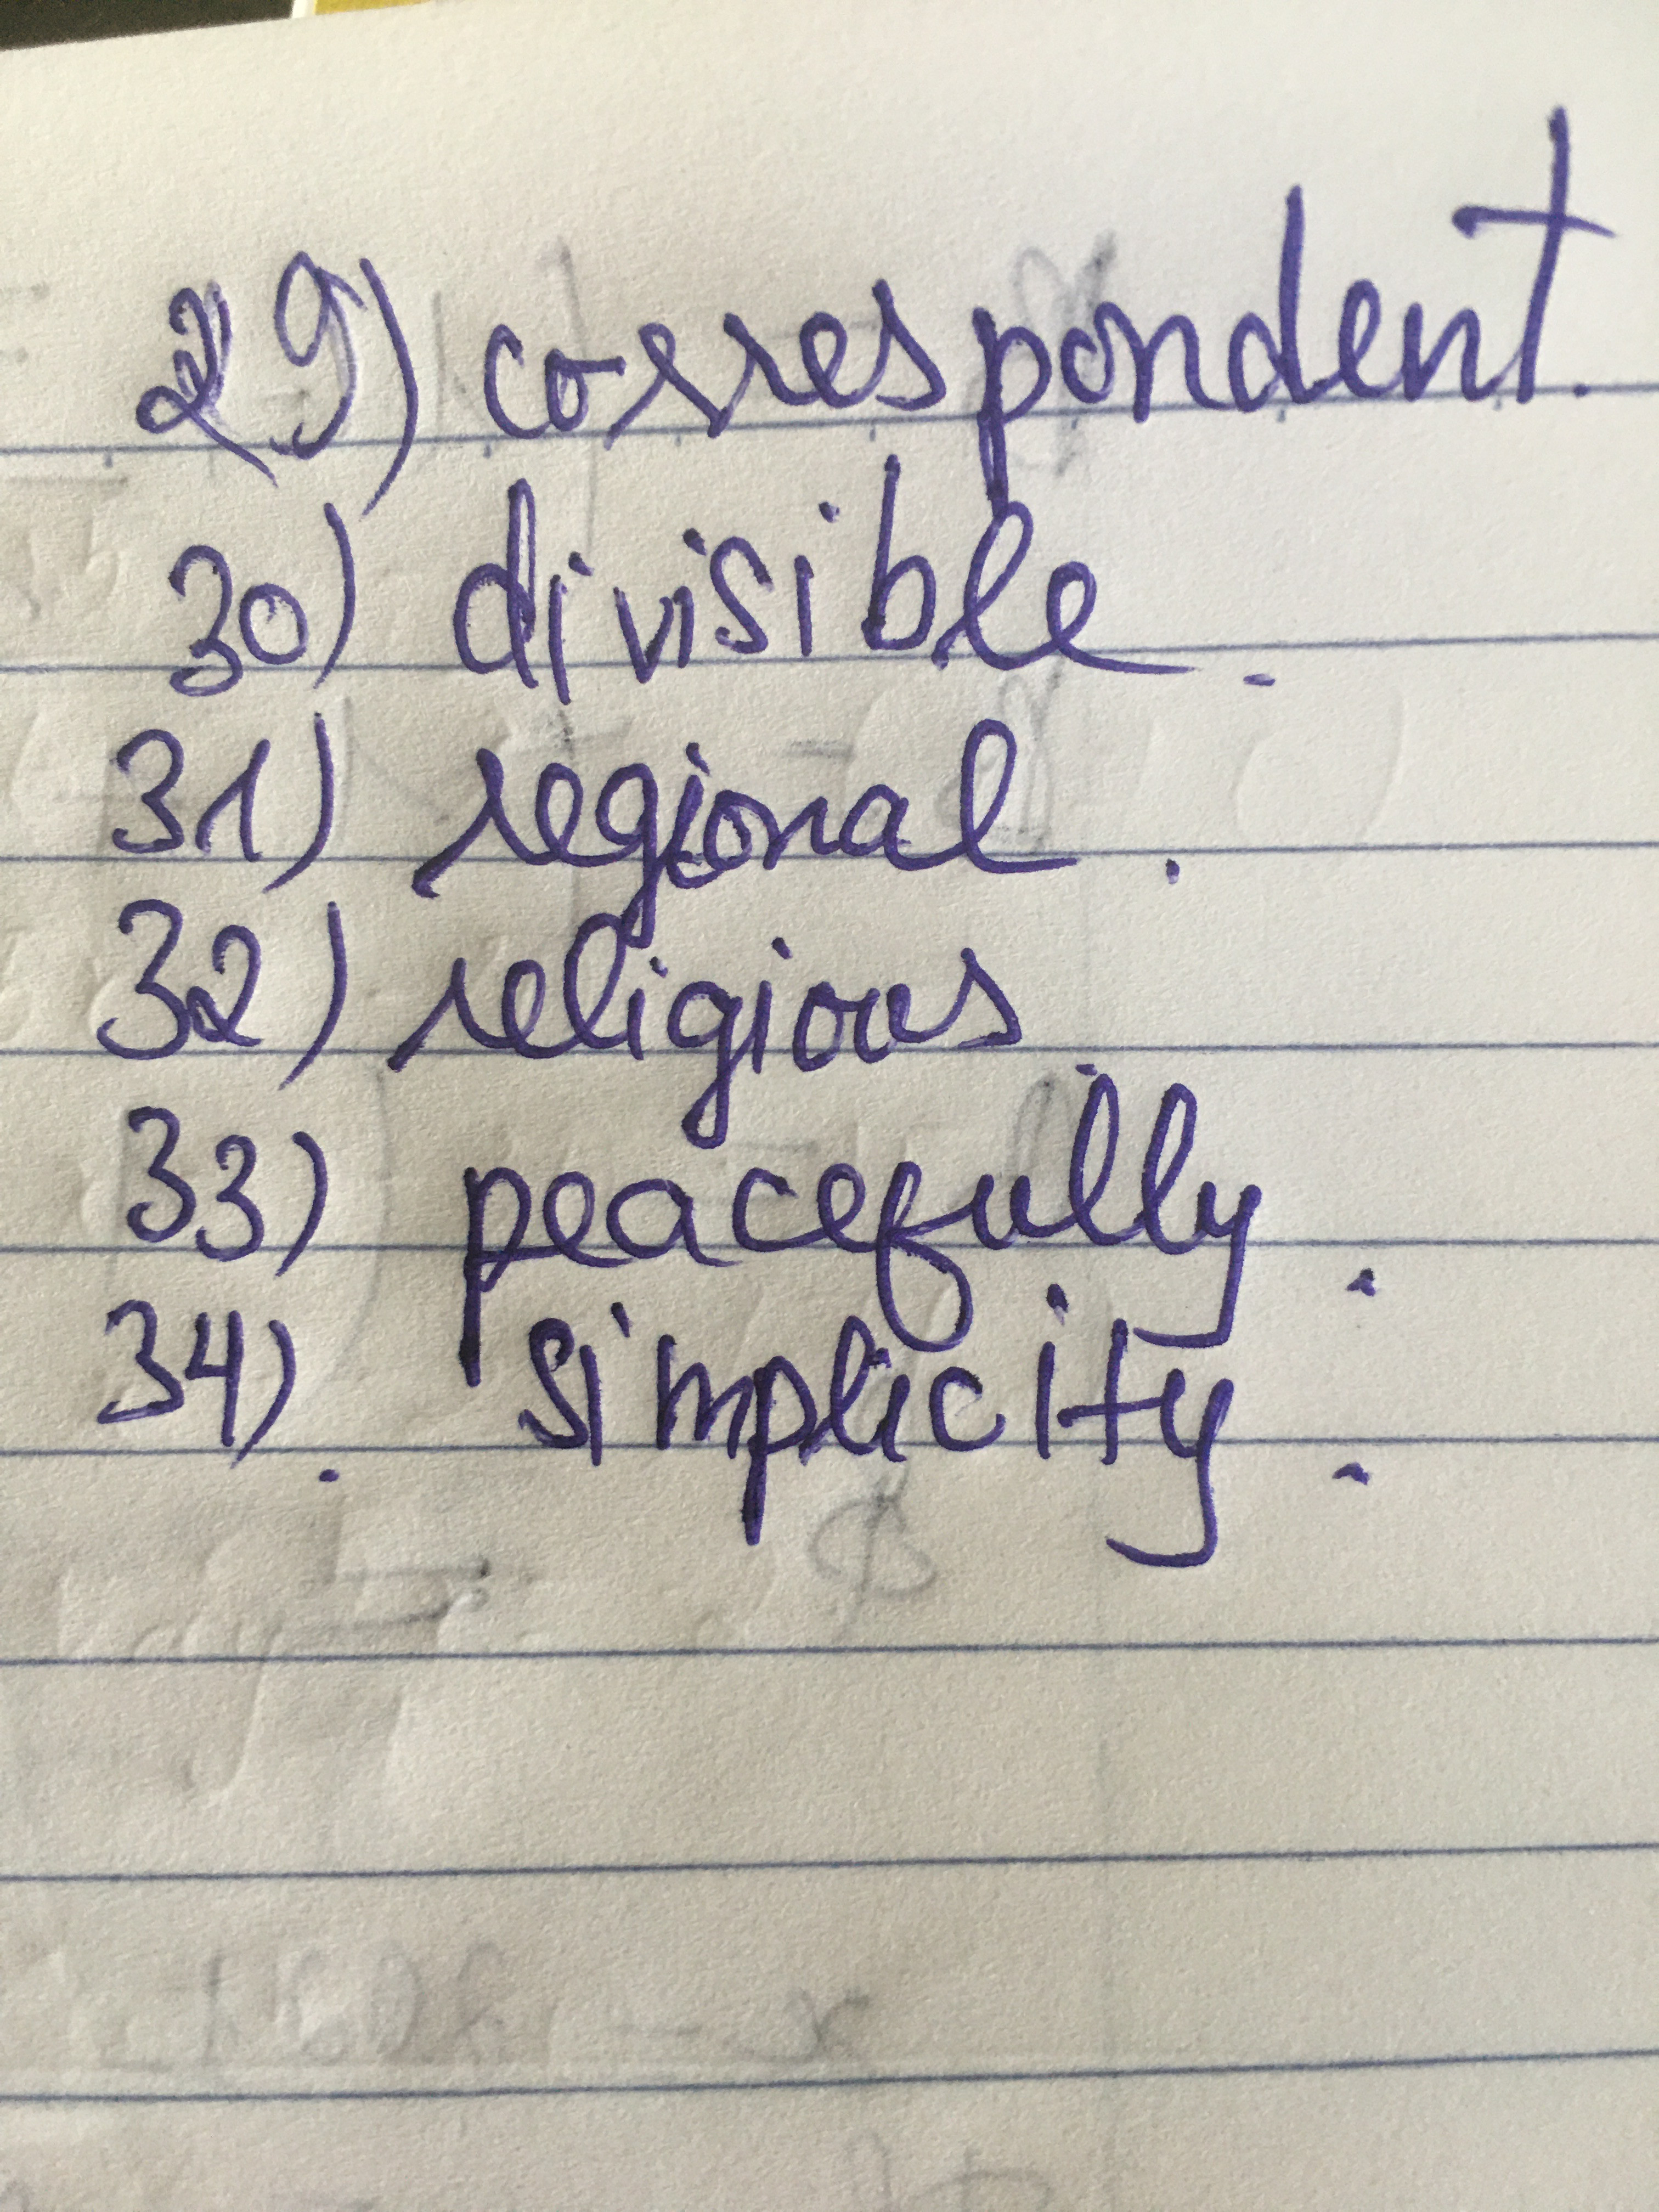 29) correspondent.
30) divisible.
31) regional.
32) religious.
33) peacefully.
34). simplicity.